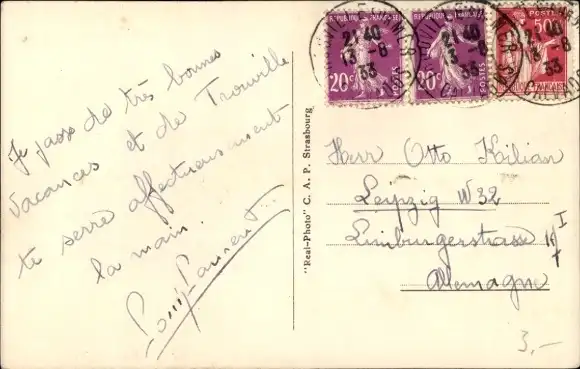 Je passe de très bonnes
vacances et de Trouville
te serre affectueusement
la main.
Laurent
"Real-Photo" C. A. P. Strasbourg
REPUBLIQUE FRANÇAISE
20c
POSTES
REPUBLIQUE FRANÇAISE
20c
POSTES
POSTES
50c
21 40
13 - 8
33
21 40
13 - 8
33
21 40
13 - 8
33
CALVADOS
Herr Otto Kilian
Leipzig W 32
Limburgerstrasse
I
Allemagne
3,-